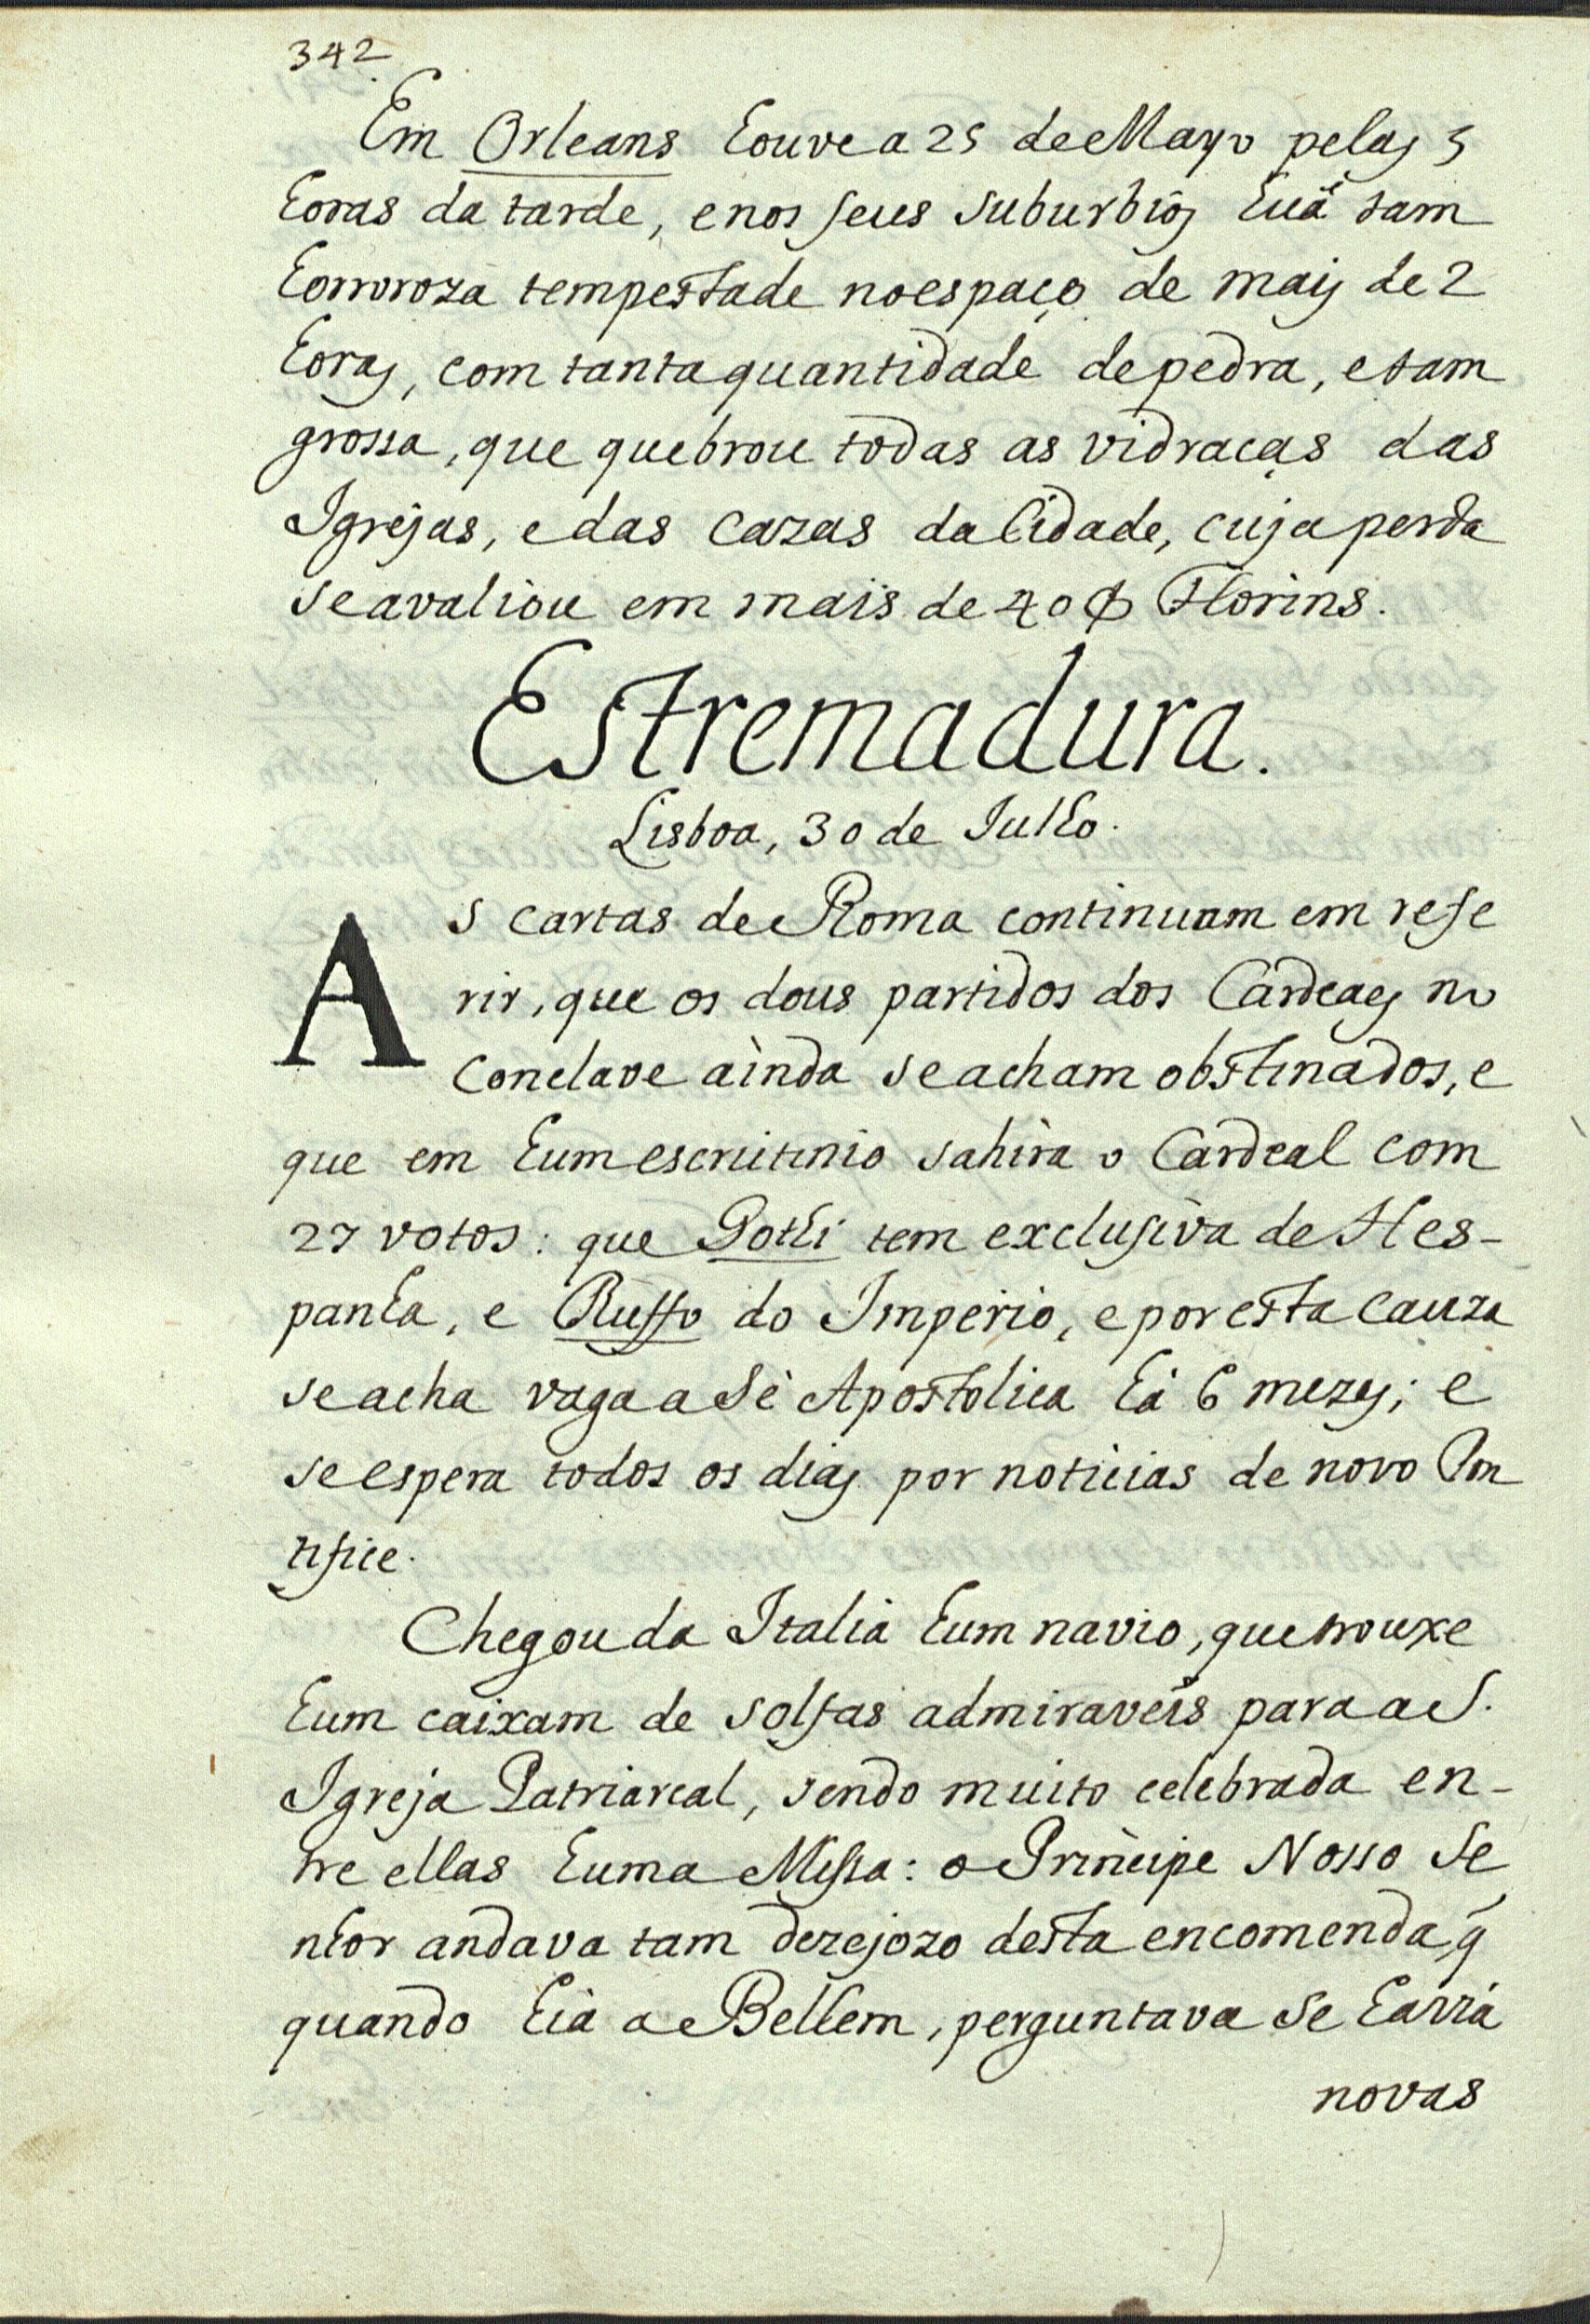 342
Em Orleans houve a 25 de Mayo pelas 5
horas da tarde, e nos seus suburbios huã tam
horroroza tempestade no espaço de mais de 2
horas, com tanta quantidade de pedra, e tam
grossa, que quebrou todas as vidraças das
Igrejas, e das cazas da Cidade, cuja perda
se avaliou em mais de 40₵ Florins.
Estremadura.
Lisboa, 30 de Julho.
As cartas de Roma continuam em refe
rir, que os dous partidos dos Cardeaes no
Conclave ainda se acham obstinados, e
que em hum escrutinio sahira o Cardeal com
27 votos: que Gothi tem exclusiva de Hes-
panha, e Ruffo do Imperio, e por esta cauza
se acha vaga a Sè Apostolica há 6 mezes; e
se espera todos os dias por noticias de novo Pon
tifice.
Chegou da Italia hum navio, que trouxe
hum caixam de solfas admiraveis para a S.
Igreja Patriarcal, sendo muito celebrada en-
tre ellas huma Missa: o Principe Nosso Se
nhor andava tam dezejozo desta encomenda, q̃
quando hia a Bellem, perguntava se havia
novas